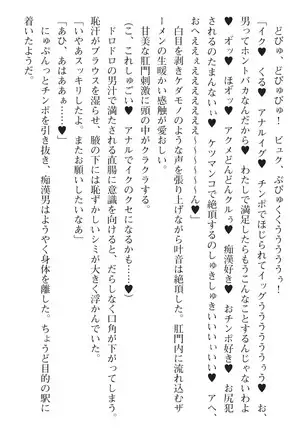 どぴゅ、どぴゅどぴゅ！　ビュク、ぶぴゅくくううううぅ！
「イク♥　くる♥　アナルイク♥　チンポでほじられてイッグううううううぅぅう
♥　男ってホントバカなんだから♥　わたしで満足したらもうこんなことするんじゃない
♥　オッ♥　ほオッ♥　アクメどんどんクルぅ♥　痴漢好き♥　おチンポ好き♥　お尻犯
されるのたまんないぃ♥　ケツマンコで絶頂するのしゅきしゅきいいいぃぃい♥　アヘ、
おへえええぇぇええええええぇ～～～～～～ん♥」
　白目を剥きケダモノのような声を張り上げながら叶音は絶頂した。肛門内に流れ込むザ
ーメンの生暖かい感触が愛おしい。
（こ、これしゅごい♥　アナルでイクのクセになっちゃうかも……♥）
　甘美な肛門刺激に頭の中がクラクラする。
　ドロドロの男汁で満たされた直腸に意識を向けると、だらしなく口角が下がってしまう。
恥汗がブラウスを湿らせ、腋の下には恥ずかしいシミが大きく浮かんでいた。
「ふぅ、スッキリしたよ。またお願いしたいなあ」
「あひ、あはああぁ……♥」
　にゅぷんっとチンポを引き抜き、痴漢男はようやく身体を離した。ちょうど目的の駅に
着いたようだ。